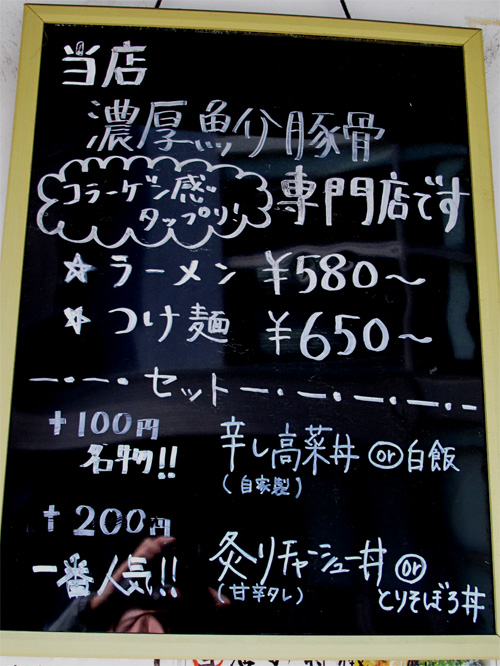 当店
濃厚魚介豚骨
コラーゲン感
タップリ!
専門店です
☆ ラーメン ¥580〜
☆ つけ麺 ¥650〜
セット
+100円
名物!!
辛し高菜丼 or 白飯
(自家製)
+200円
一番人気!!
炙りチャーシュー丼 or
(甘辛タレ)
とりそぼろ丼